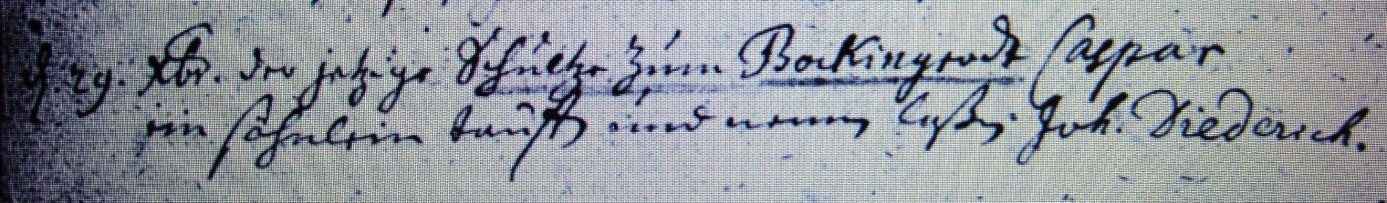 d. 29. Xbr. der jetzige Schultze zum Bockingrodt Caspar
ein söhnlein tauffen und nennen laßen Joh. Diederich.